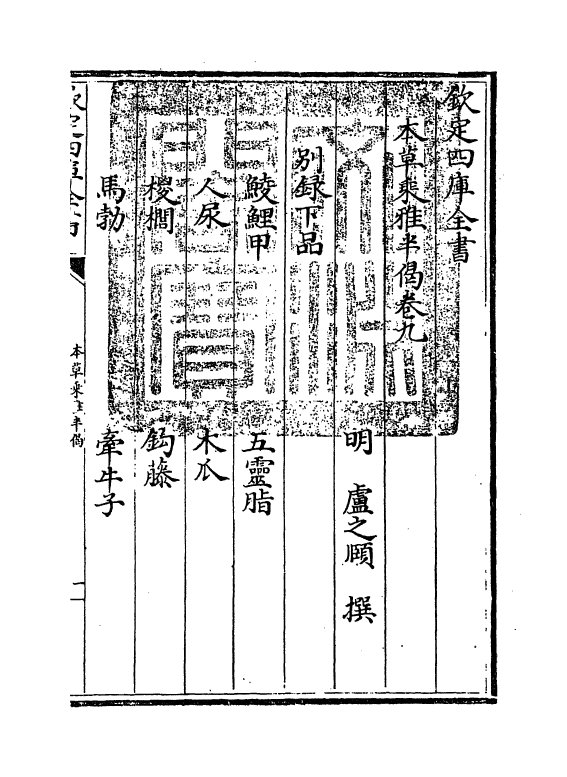 欽定四庫全書
本草乘雅半偈卷九
明 盧之頤 撰
别録下品
鯪鯉甲 五靈脂
人尿 木瓜
椶櫚 鈎藤
馬勃 牽牛子
欽定四庫全書
本草乘雅半偈
一
文淵閣寶